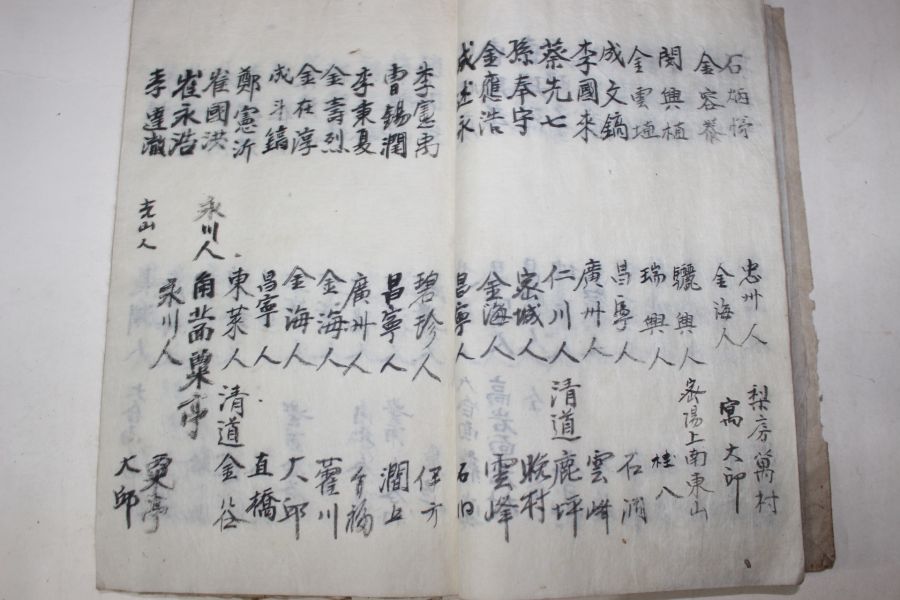 石炳 忠州人 梨房萬村
金容 金海人 寓大邱
閔興植 驪興人 密陽上南東山
金雲埴 瑞興人 桂八
成文鎬 昌寧人 石洞
李國來 廣州人 雲峰
蔡先七 仁川人 清道鹿坪
孫奉宇 密城人 晚村
金應浩 金海人 雲峰
成述永 昌寧人 石旧
李憲禹 碧珍人 伊方
曺錫潤 昌寧人 澗上
李東夏 廣州人
金壽烈 金海人 藿川
金在淳 金海人 大邱
成斗鎬 昌寧人 直橋
鄭憲沂 東萊人 清道金谷
崔國洪 永川人 角苗粟亭
崔永浩 永川人 粟亭
李達 光山人 大邱